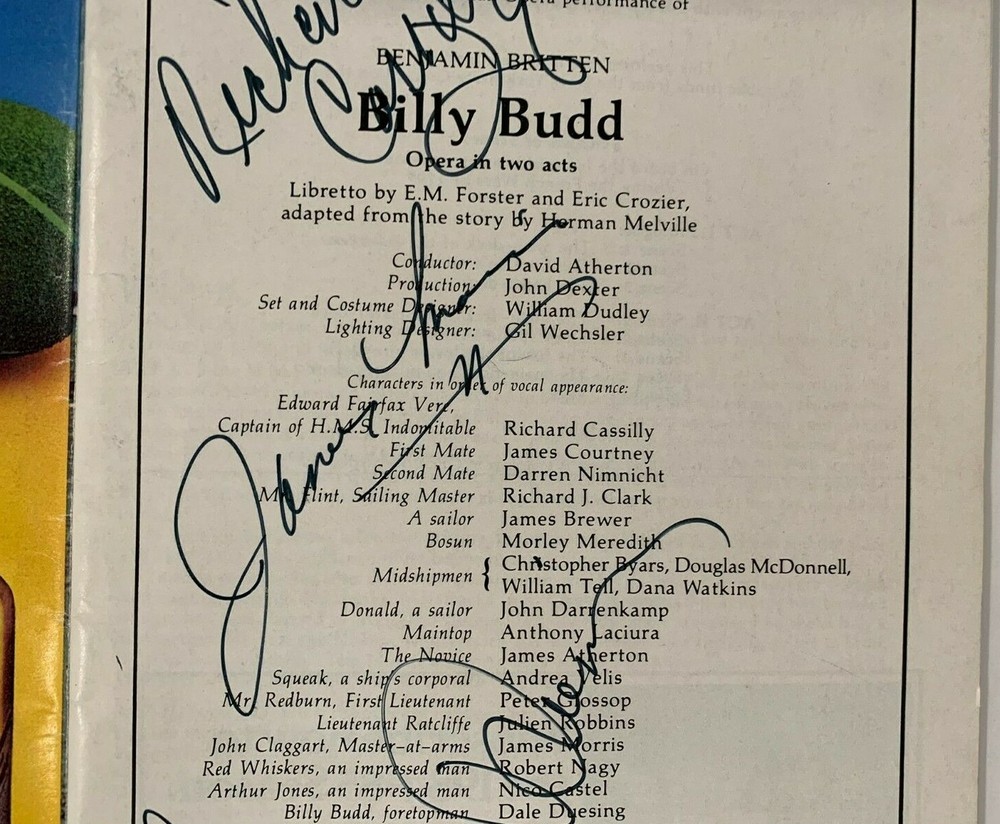 performance of
BENJAMIN BRITTEN
Billy Budd
Opera in two acts
Libretto by E.M. Forster and Eric Crozier,
adapted from the story by Herman Melville
Conductor: David Atherton
Production: John Dexter
Set and Costume Designer: William Dudley
Lighting Designer: Gil Wechsler
Characters in order of vocal appearance:
Edward Fairfax Vere,
Captain of H.M.S. Indomitable Richard Cassilly
First Mate James Courtney
Second Mate Darren Nimnicht
Mr. Flint, Sailing Master Richard J. Clark
A sailor James Brewer
Bosun Morley Meredith
Midshipmen { Christopher Byars, Douglas McDonnell,
William Tell, Dana Watkins
Donald, a sailor John Darrenkamp
Maintop Anthony Laciura
The Novice James Atherton
Squeak, a ship's corporal Andrea Velis
Mr. Redburn, First Lieutenant Peter Glossop
Lieutenant Ratcliffe Julien Robbins
John Claggart, Master-at-arms James Morris
Red Whiskers, an impressed man Robert Nagy
Arthur Jones, an impressed man Nico Castel
Billy Budd, foretopman Dale Duesing
Richard
James